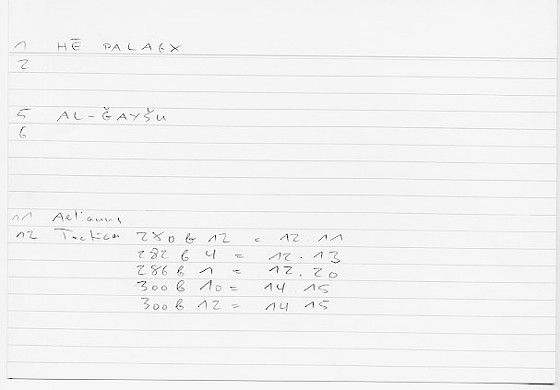 1 HĒ PALAGX
2
5 AL-ǦAYŠU
6
11 Aelianus
12 Tactica 280 b 12 = 12 11
282 b 4 = 12.13
286 b 1 = 12.20
300 b 10 = 14 15
300 b 12 = 14 15